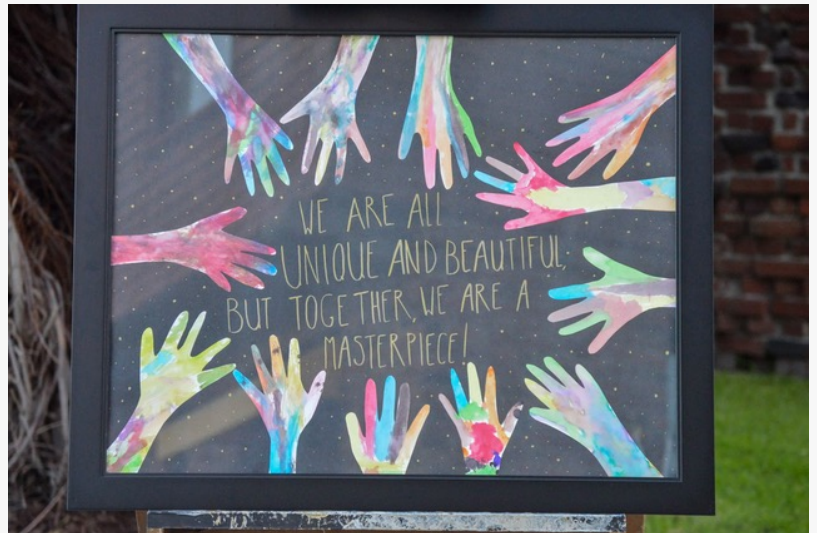 WE ARE ALL
UNIQUE AND BEAUTIFUL,
BUT TOGETHER, WE ARE A
MASTERPIECE!